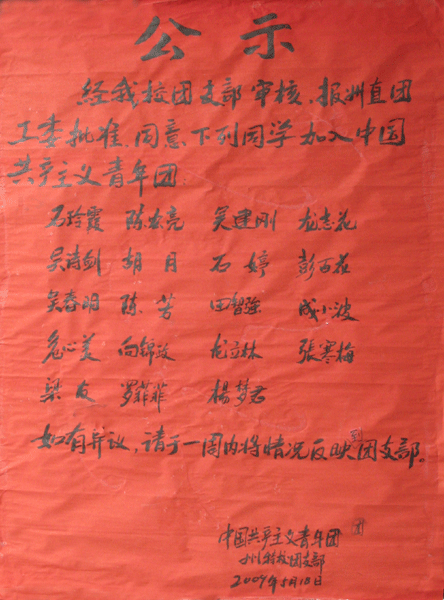 公示
经我校团支部审核,报洲直团
工委批准,同意下列同学加入中国
共产主义青年团
石玲霞 陈宏亮 吴建刚 龙志花
吴诗剑 胡月 石婷 彭百花
吴春明 陈芳 田智强 成小波
危心美 向锦政 龙立林 張寒梅
梁友 罗菲菲 楊梦君
如有异议,请于一周内将情况反映到团支部。
中国共产主义青年团
州特校团支部
2009年5月18日